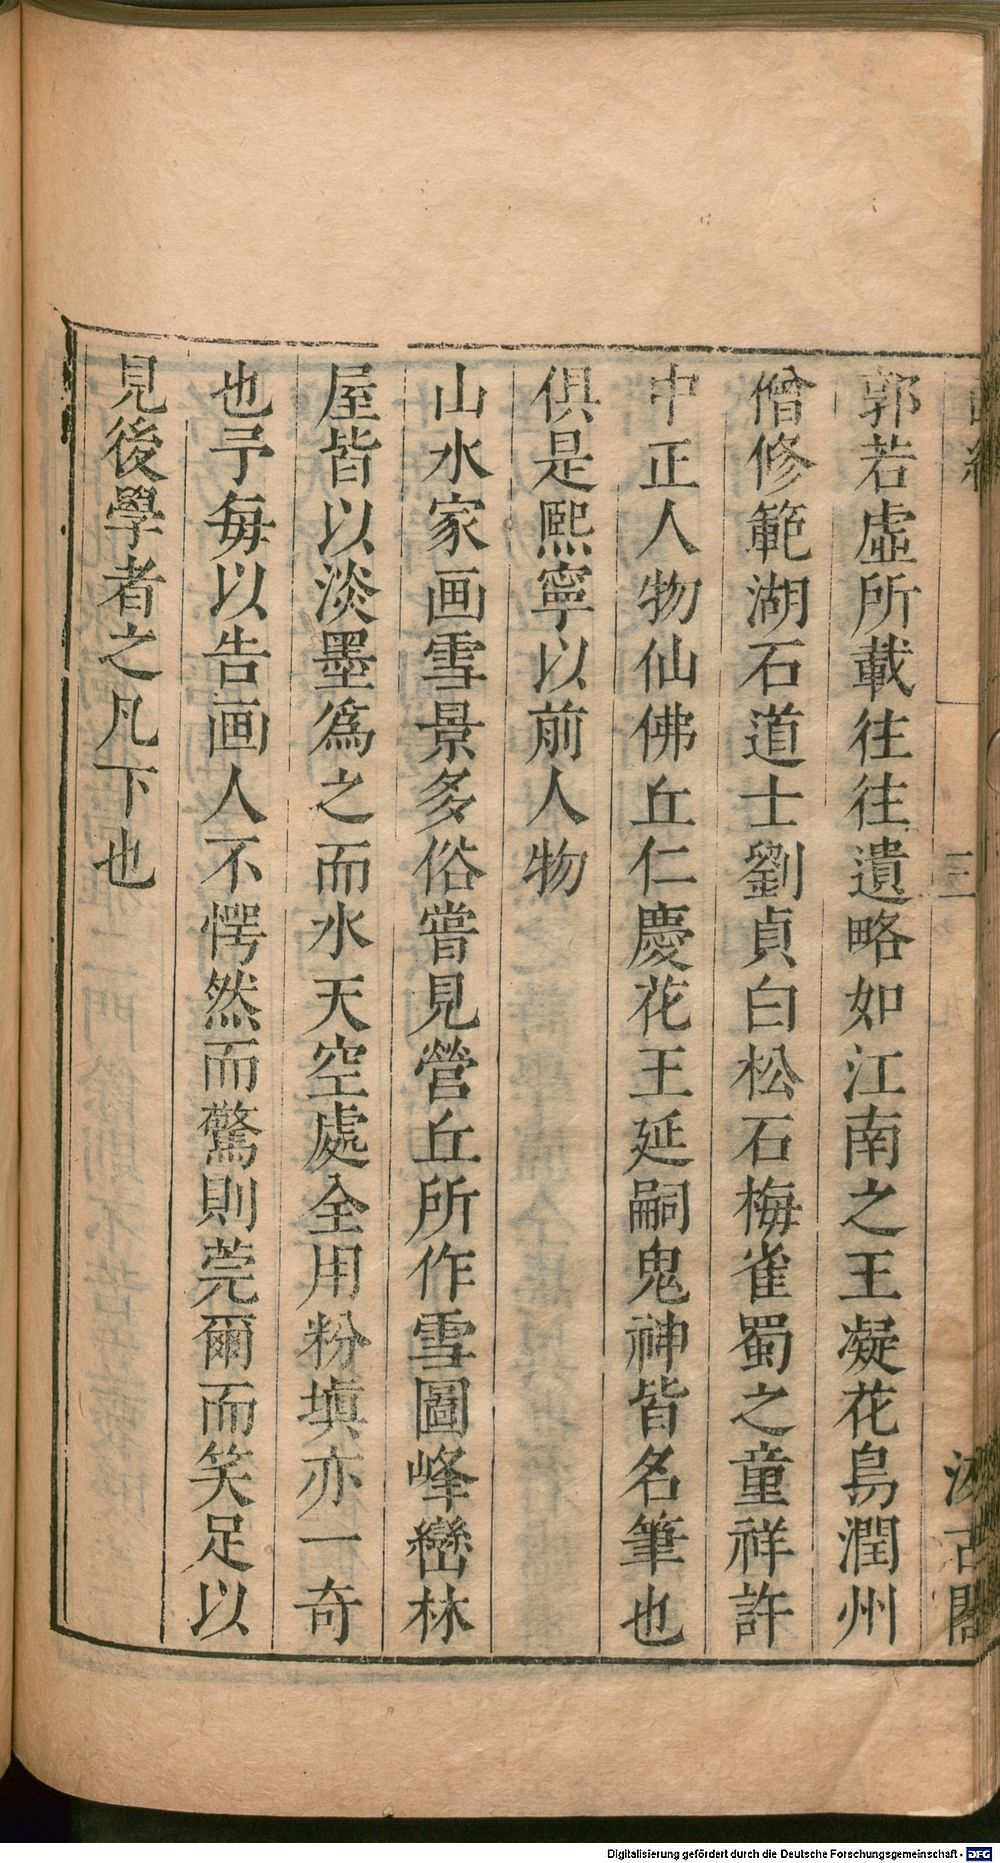 三
汲古閣
郭若虛所載往往遺略如江南之王凝花鳥潤州
僧修範湖石道士劉貞白松石梅雀蜀之童祥許
中正人物仙佛丘仁慶花王延嗣鬼神皆名筆也
俱是熙寧以前人物
山水家画雪景多俗嘗見營丘所作雪圖峰巒林
屋皆以淡墨爲之而水天空處全用粉填亦一奇
也予每以告画人不愕然而驚則莞爾而笑足以
見後學者之凡下也
Digitalisierung gefördert durch die Deutsche Forschungsgemeinschaft - DFG